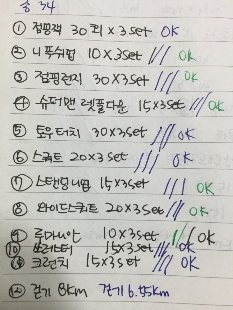 총 34
① 점핑잭 30회 x 3set OK
② 니푸쉬업 10 x 3set /// OK
③ 점핑런지 30 x 3set /// OK
④ 슈퍼맨 렛풀다운 15 x 3set /// OK
⑤ 토우터치 30 x 3set /// OK
⑥ 스쿼트 20 x 3set /// OK
⑦ 스탠딩니업 15 x 3set /// OK
⑧ 와이드스쿼트 20 x 3set // OK
⑨ 루마니안 10 x 3set /// OK
⑩ 15 x 3set /// OK
⑪ 크런치 15 x 3set /// OK
⑫ 걷기 8km 걷기 6.85km